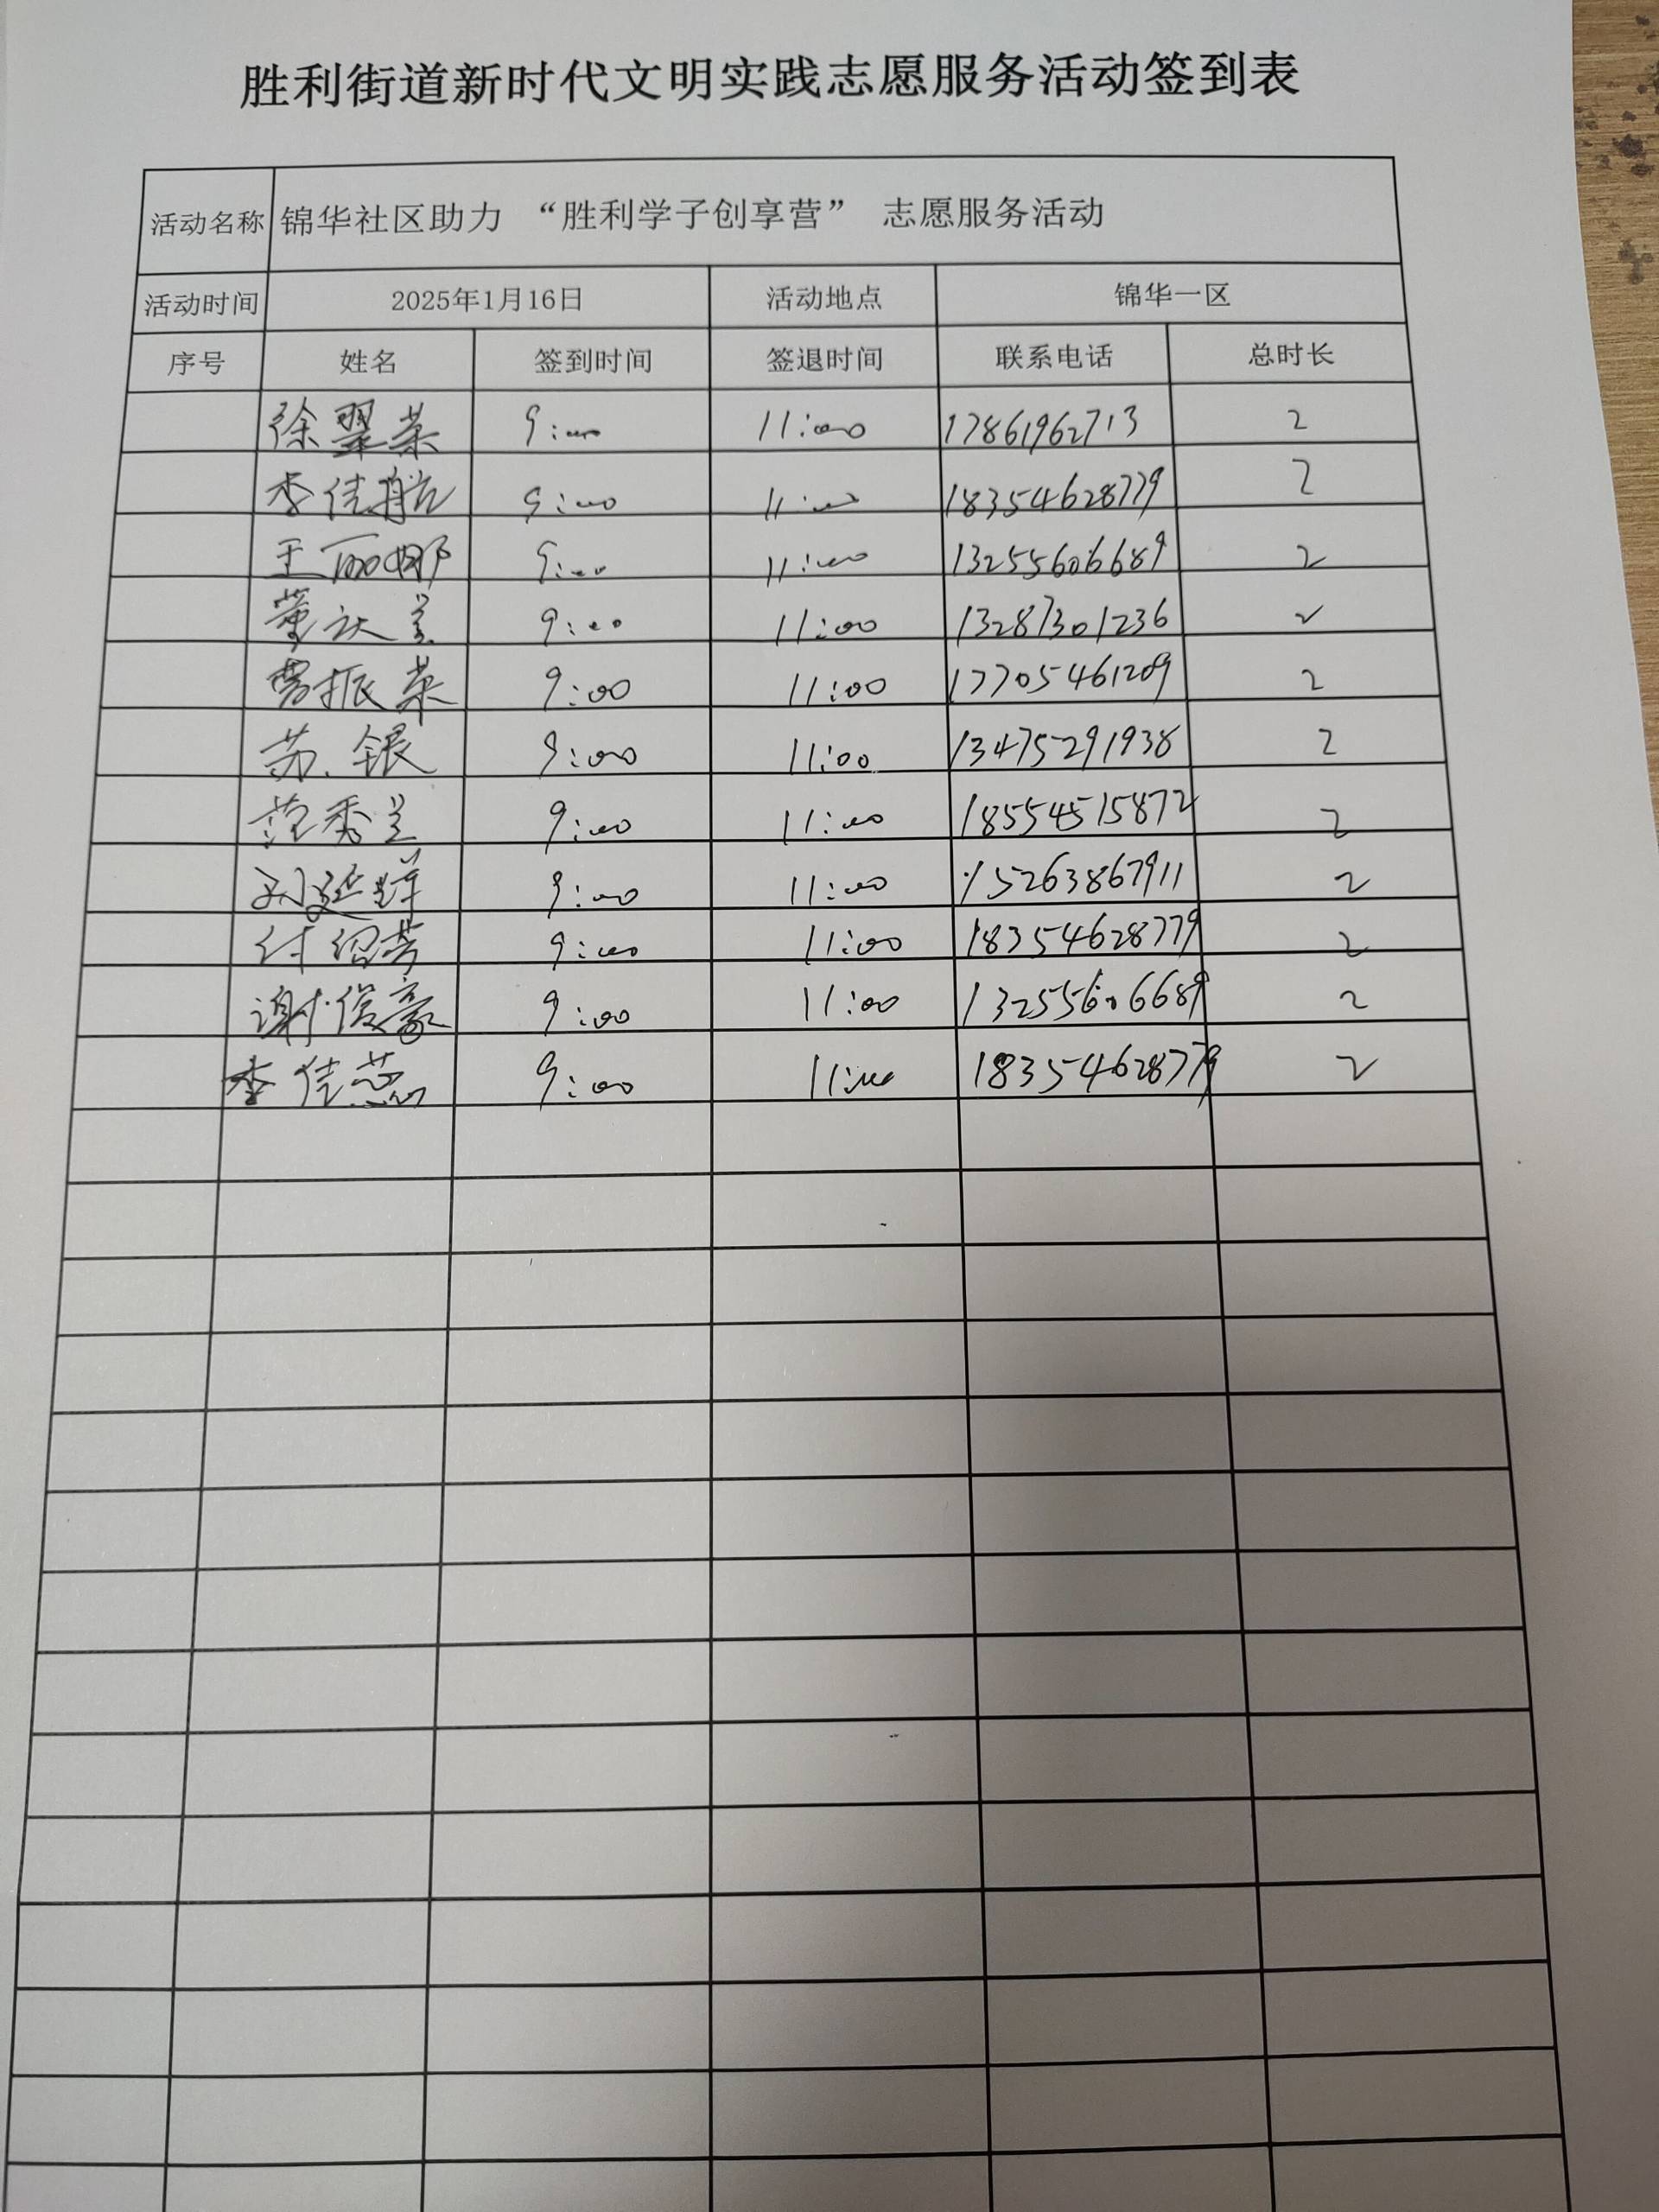 胜利街道新时代文明实践志愿服务活动签到表
活动名称 锦华社区助力 “胜利学子创享营” 志愿服务活动
活动时间 2025年1月16日 活动地点 锦华一区
序号 姓名 签到时间 签退时间 联系电话 总时长
徐翠荣 9:00 11:00 17861962713 2
李佳航 9:00 11:00 18354628779 2
王丽娜 9:00 11:00 13255606689 2
董 9:00 11:00 13287301236 2
振荣 9:00 11:00 17705461209 2
苏银 9:00 11:00 13475291938 2
范秀兰 9:00 11:00 18554515872 2
刘延 9:00 11:00 15263867911 2
付绍芳 9:00 11:00 18354628779 2
谢俊豪 9:00 11:00 13255606689 2
李佳蕊 9:00 11:00 18354628779 2